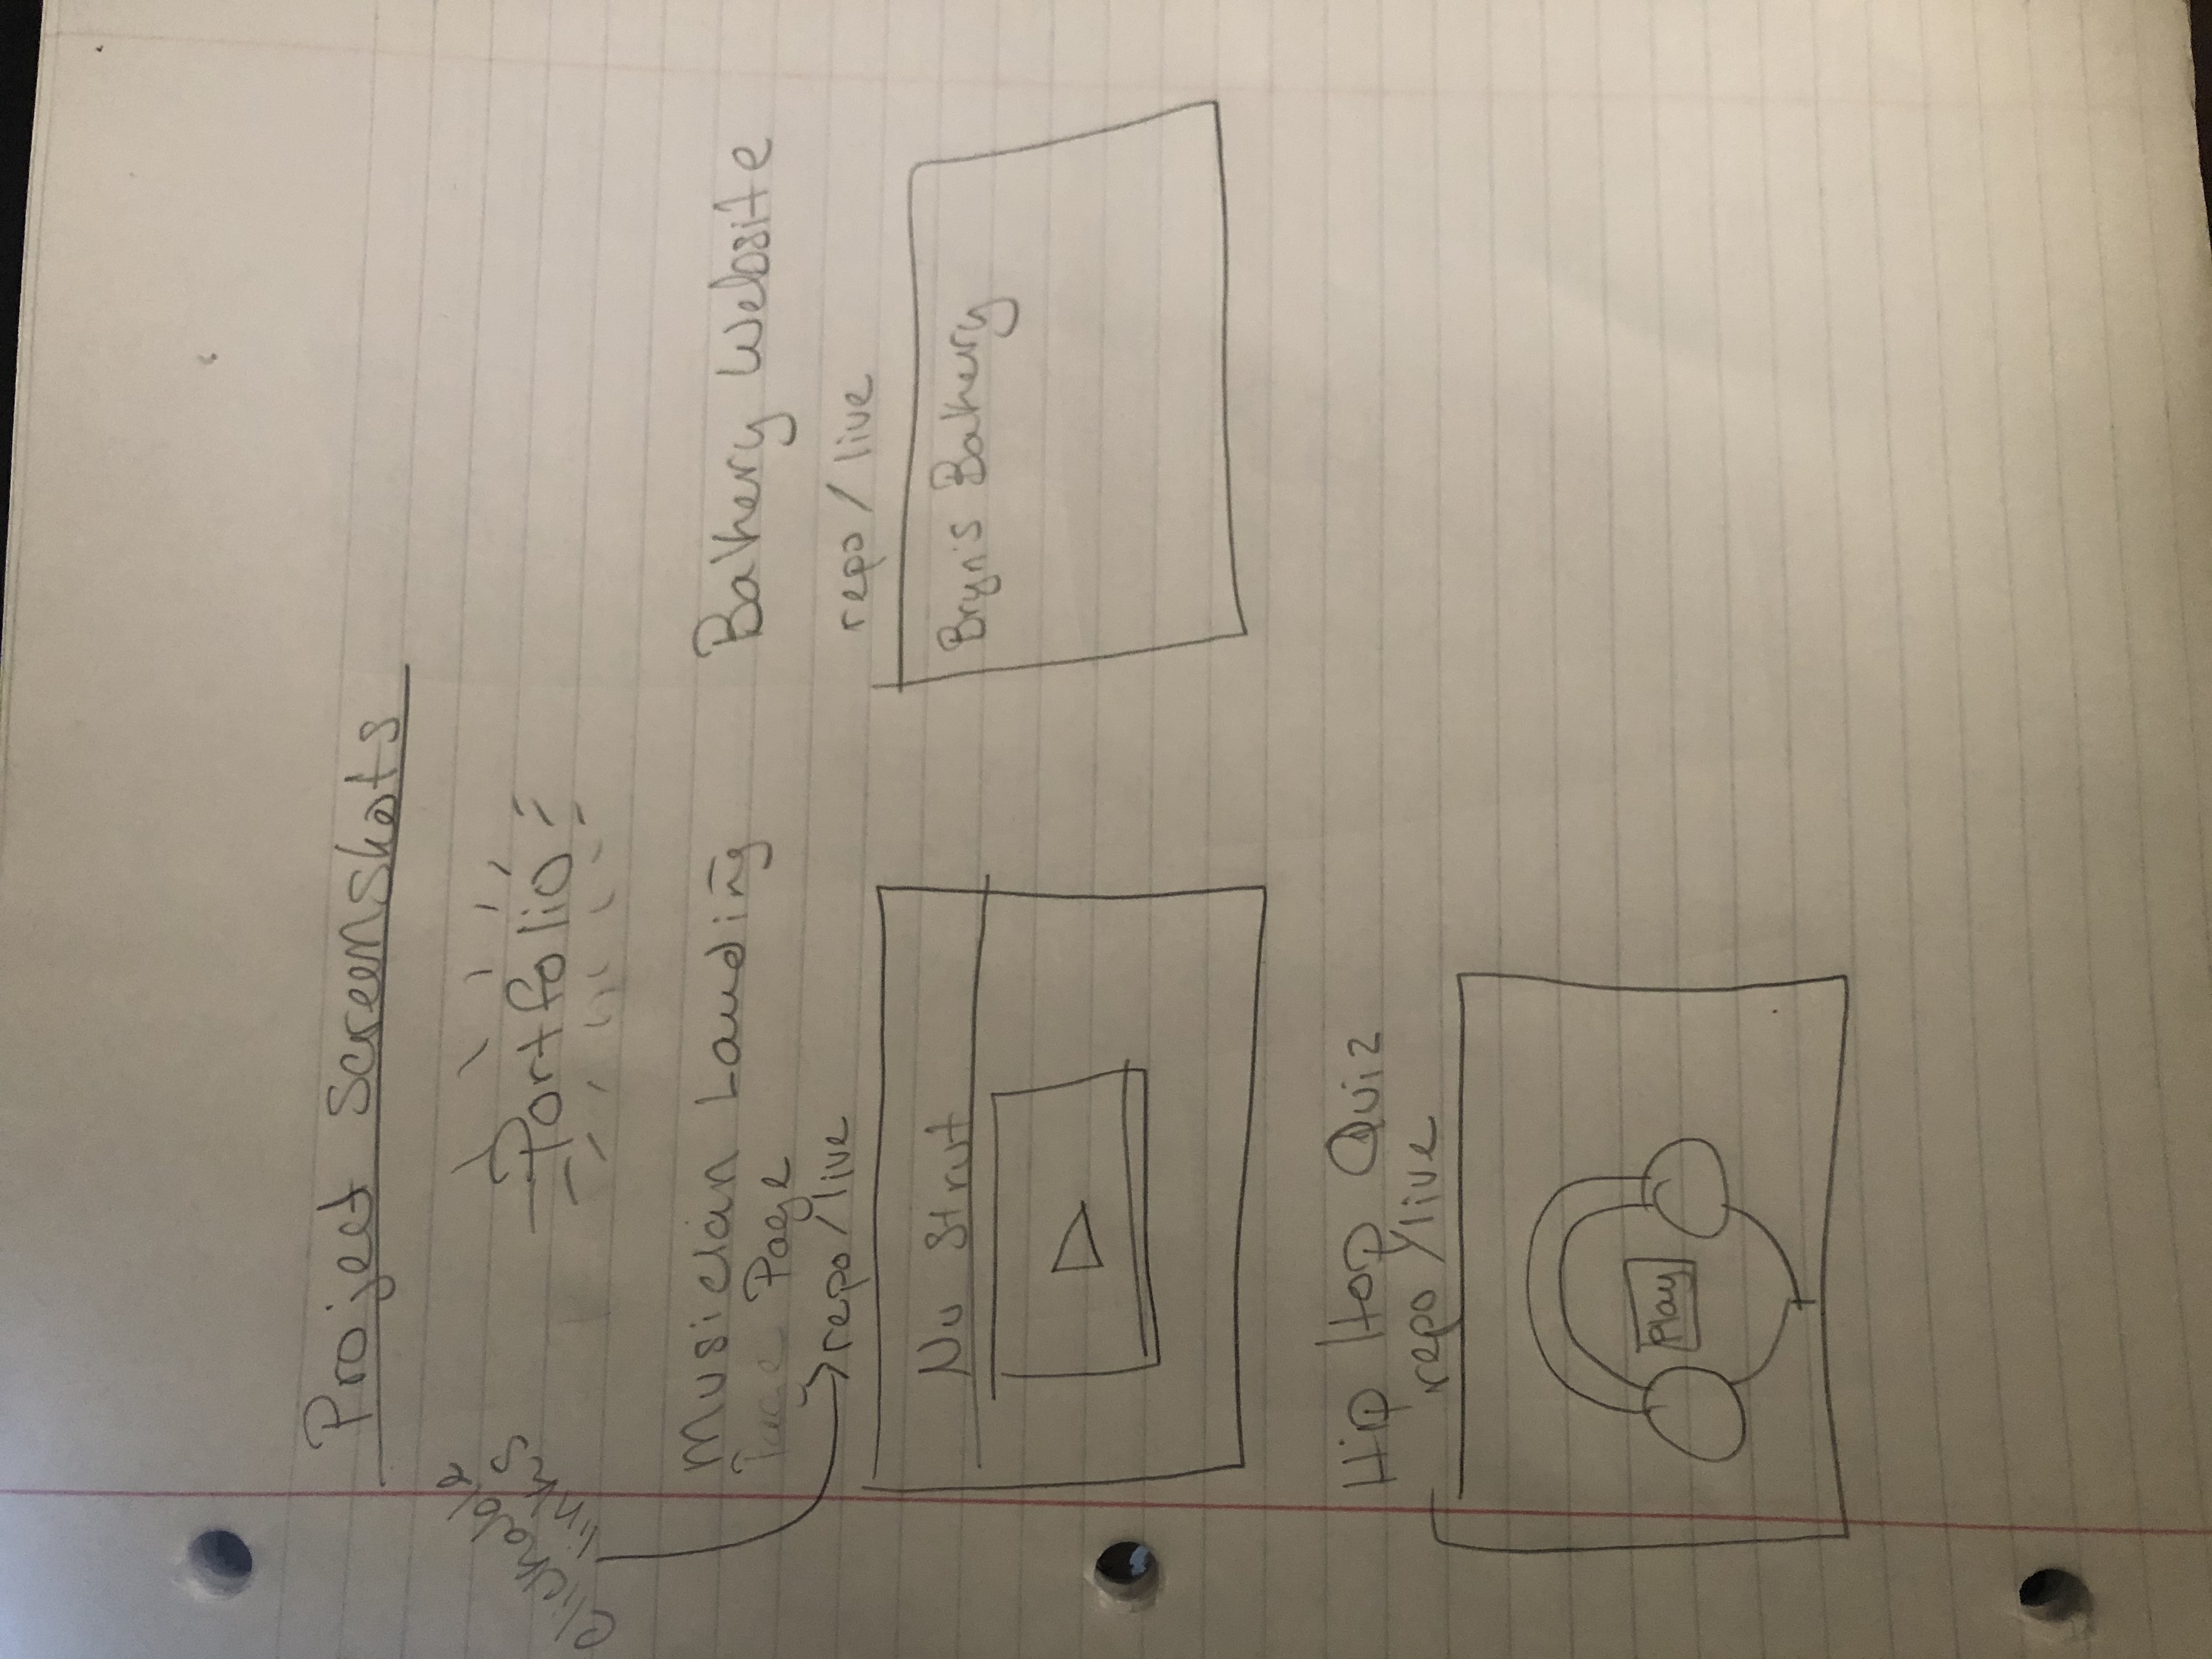 Project Screenshots
Clickable
links
Portfolio
Musician Landing
Page Page
repo/live
Nu Strut
Bakery Website
repo / live
Bryn's Bakery
Hip Hop Quiz
repo/live
Play